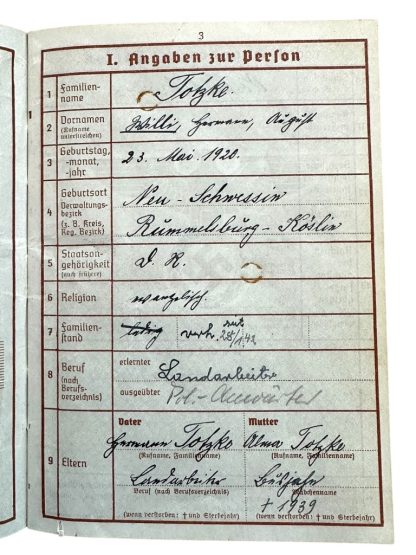 3
I. Angaben zur Person
1 Familien-
name
Totzke.
2 Vornamen
(Rufname
unterstreichen)
Willi, Hermann, August
3 Geburtstag,
-monat,
-jahr
23. Mai 1920.
4 Geburtsort
Verwaltungs-
bezirk
(z. B. Kreis,
Reg. Bezirk)
Neu - Schwessin
Rummelsburg - Köslin
5 Staatsan-
gehörigkeit
(auch frühere)
D. R.
6 Religion
evangelisch.
7 Familien-
stand
ledig verh. seit
8 Beruf
(nach
Berufs-
verzeichnis)
erlernter
Landarbeiter
ausgeübter
Pol.-Anwärter
9 Eltern
Vater
Hermann Totzke
(Rufname, Familienname)
Landarbeiter
Beruf (nach Berufsverzeichnis)
(wenn verstorben: † und Sterbejahr)
Mutter
Alma Totzke
(Rufname, Familienname)
Mädchenname
† 1939
(wenn verstorben: † und Sterbejahr)